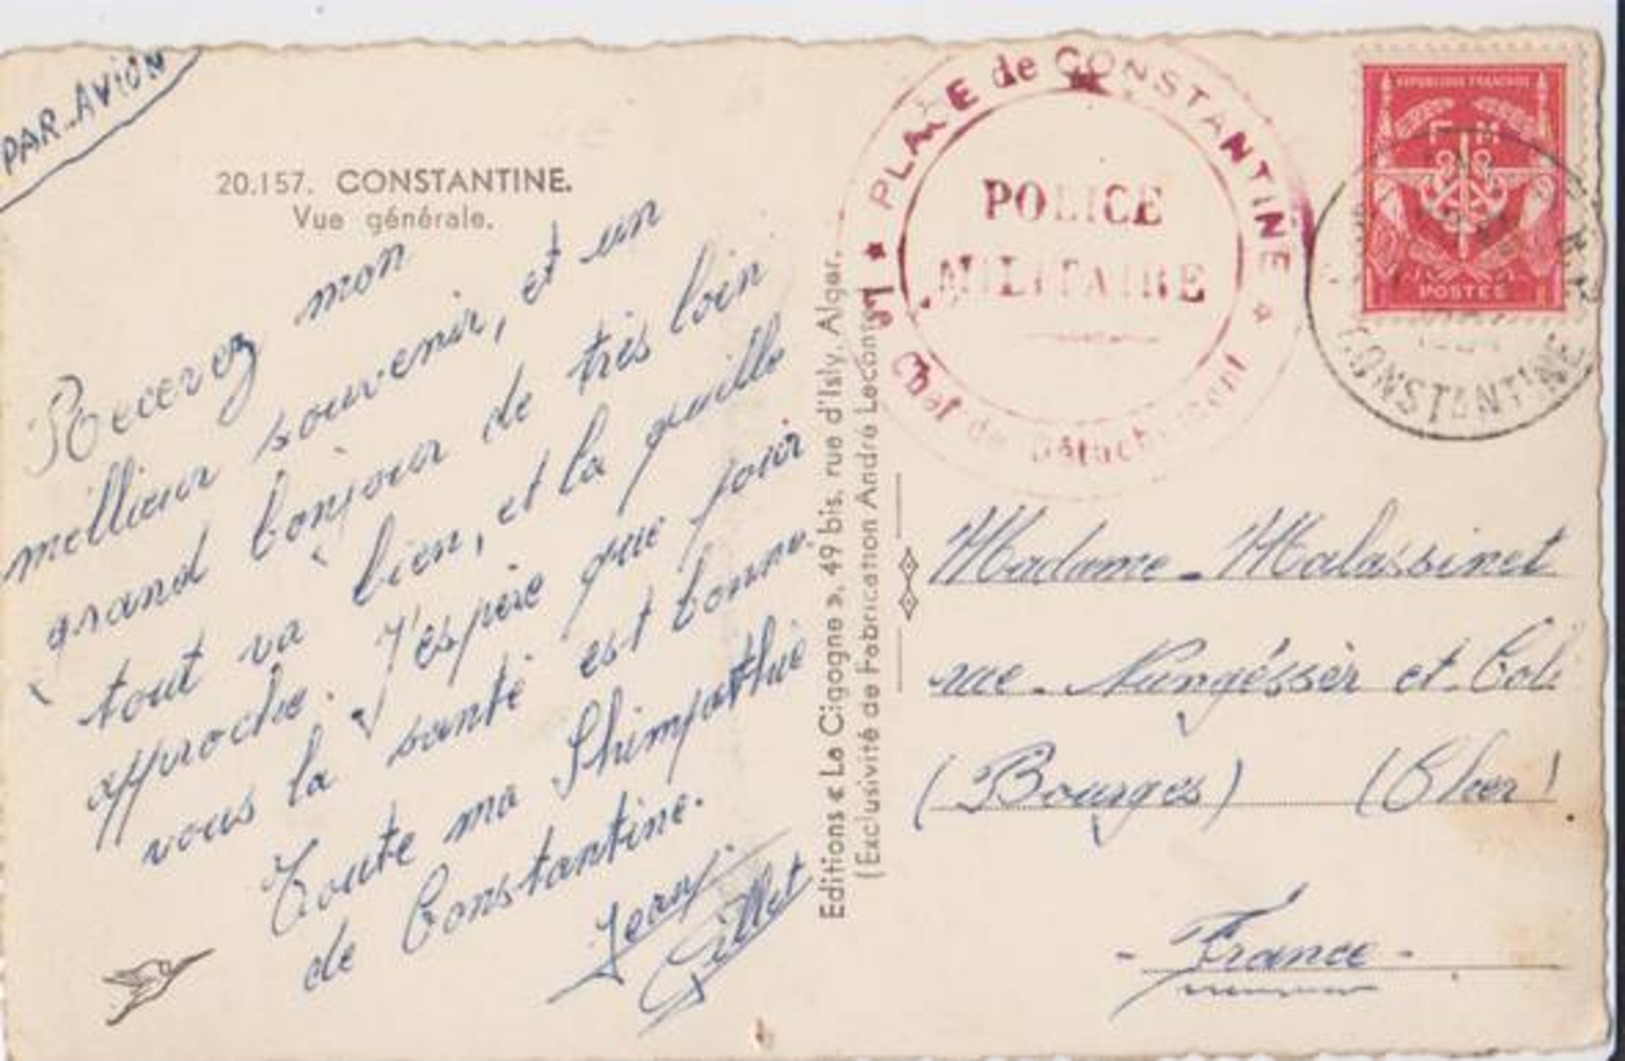 PAR AVION
20.157. CONSTANTINE.
Vue générale.
Recevez mon
meilleur souvenir, et un
grand bonjour de très loin
tout va bien, et la quille
approche. J'espère que pour
vous la santé est bonne.
Toute ma Shimpathie
de Constantine.
Jean
Gillet
Editions « La Cigogne », 49 bis, rue d'Isly, Alger.
(Exclusivité de Fabrication André Leconte)
★ PLACE de CONSTANTINE ★
Le Chef de Détachement
POLICE
MILITAIRE
REPUBLIQUE FRANCAISE
F M
POSTES
CONSTANTINE
Madame Malassinet
rue Nungéssèr et Coli
(Bourges) (Cher)
- France -